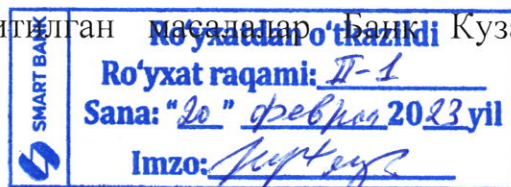 итилган масалалар Банк Куза
SMART BANK
Ro‘yxatdan o‘tkazildi
Ro‘yxat raqami: II-1
Sana: “20” феврал 2023 yil
Imzo: